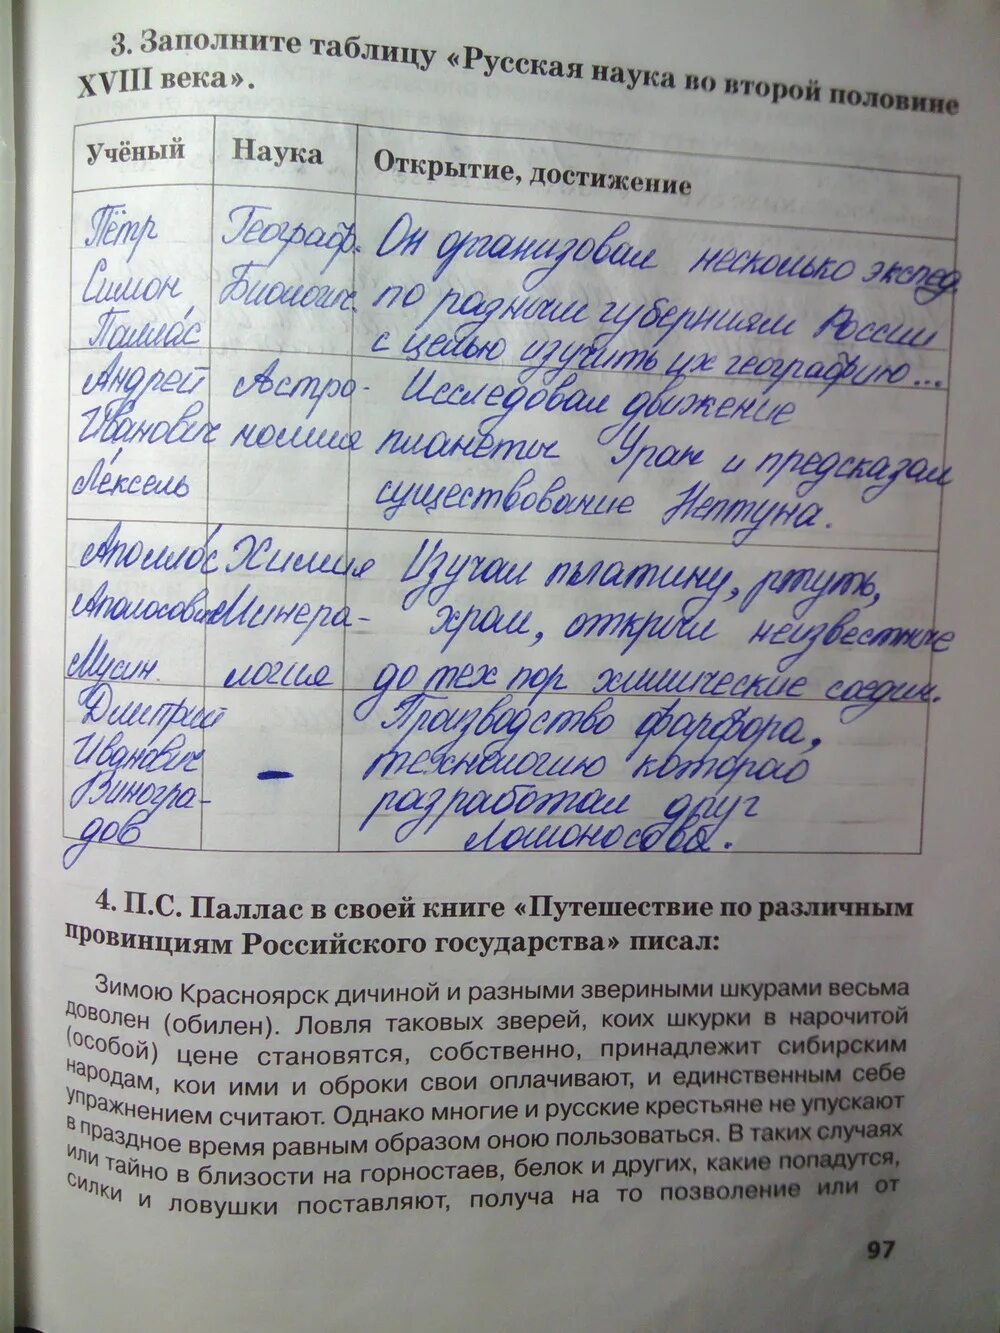 3. Заполните таблицу «Русская наука во второй половине
XVIII века».
Учёный Наука Открытие, достижение
Пётр Географ. Он организовал несколько экспед.
Симон Биологич. по разным губерниям России
Паллас с целью изучить их географию...
Андрей Астро- Исследовал движение
Иванович номия планеты Уран и предсказал
Лексель существование Нептуна.
Аполлос Химия Изучал платину, ртуть,
Аполосович Минера- хром, открыл неизвестные
Мусин. логия до тех пор химические соедин.
Дмитрий Производство фарфора,
Иванович – технологию которао
Виногра- разработал друг
дов Ломоносова.
4. П.С. Паллас в своей книге «Путешествие по различным
провинциям Российского государства» писал:
Зимою Красноярск дичиной и разными звериными шкурами весьма
доволен (обилен). Ловля таковых зверей, коих шкурки в нарочитой
(особой) цене становятся, собственно, принадлежит сибирским
народам, кои ими и оброки свои оплачивают, и единственным себе
упражнением считают. Однако многие и русские крестьяне не упускают
в праздное время равным образом оною пользоваться. В таких случаях
или тайно в близости на горностаев, белок и других, какие попадутся,
силки и ловушки поставляют, получа на то позволение или от
97